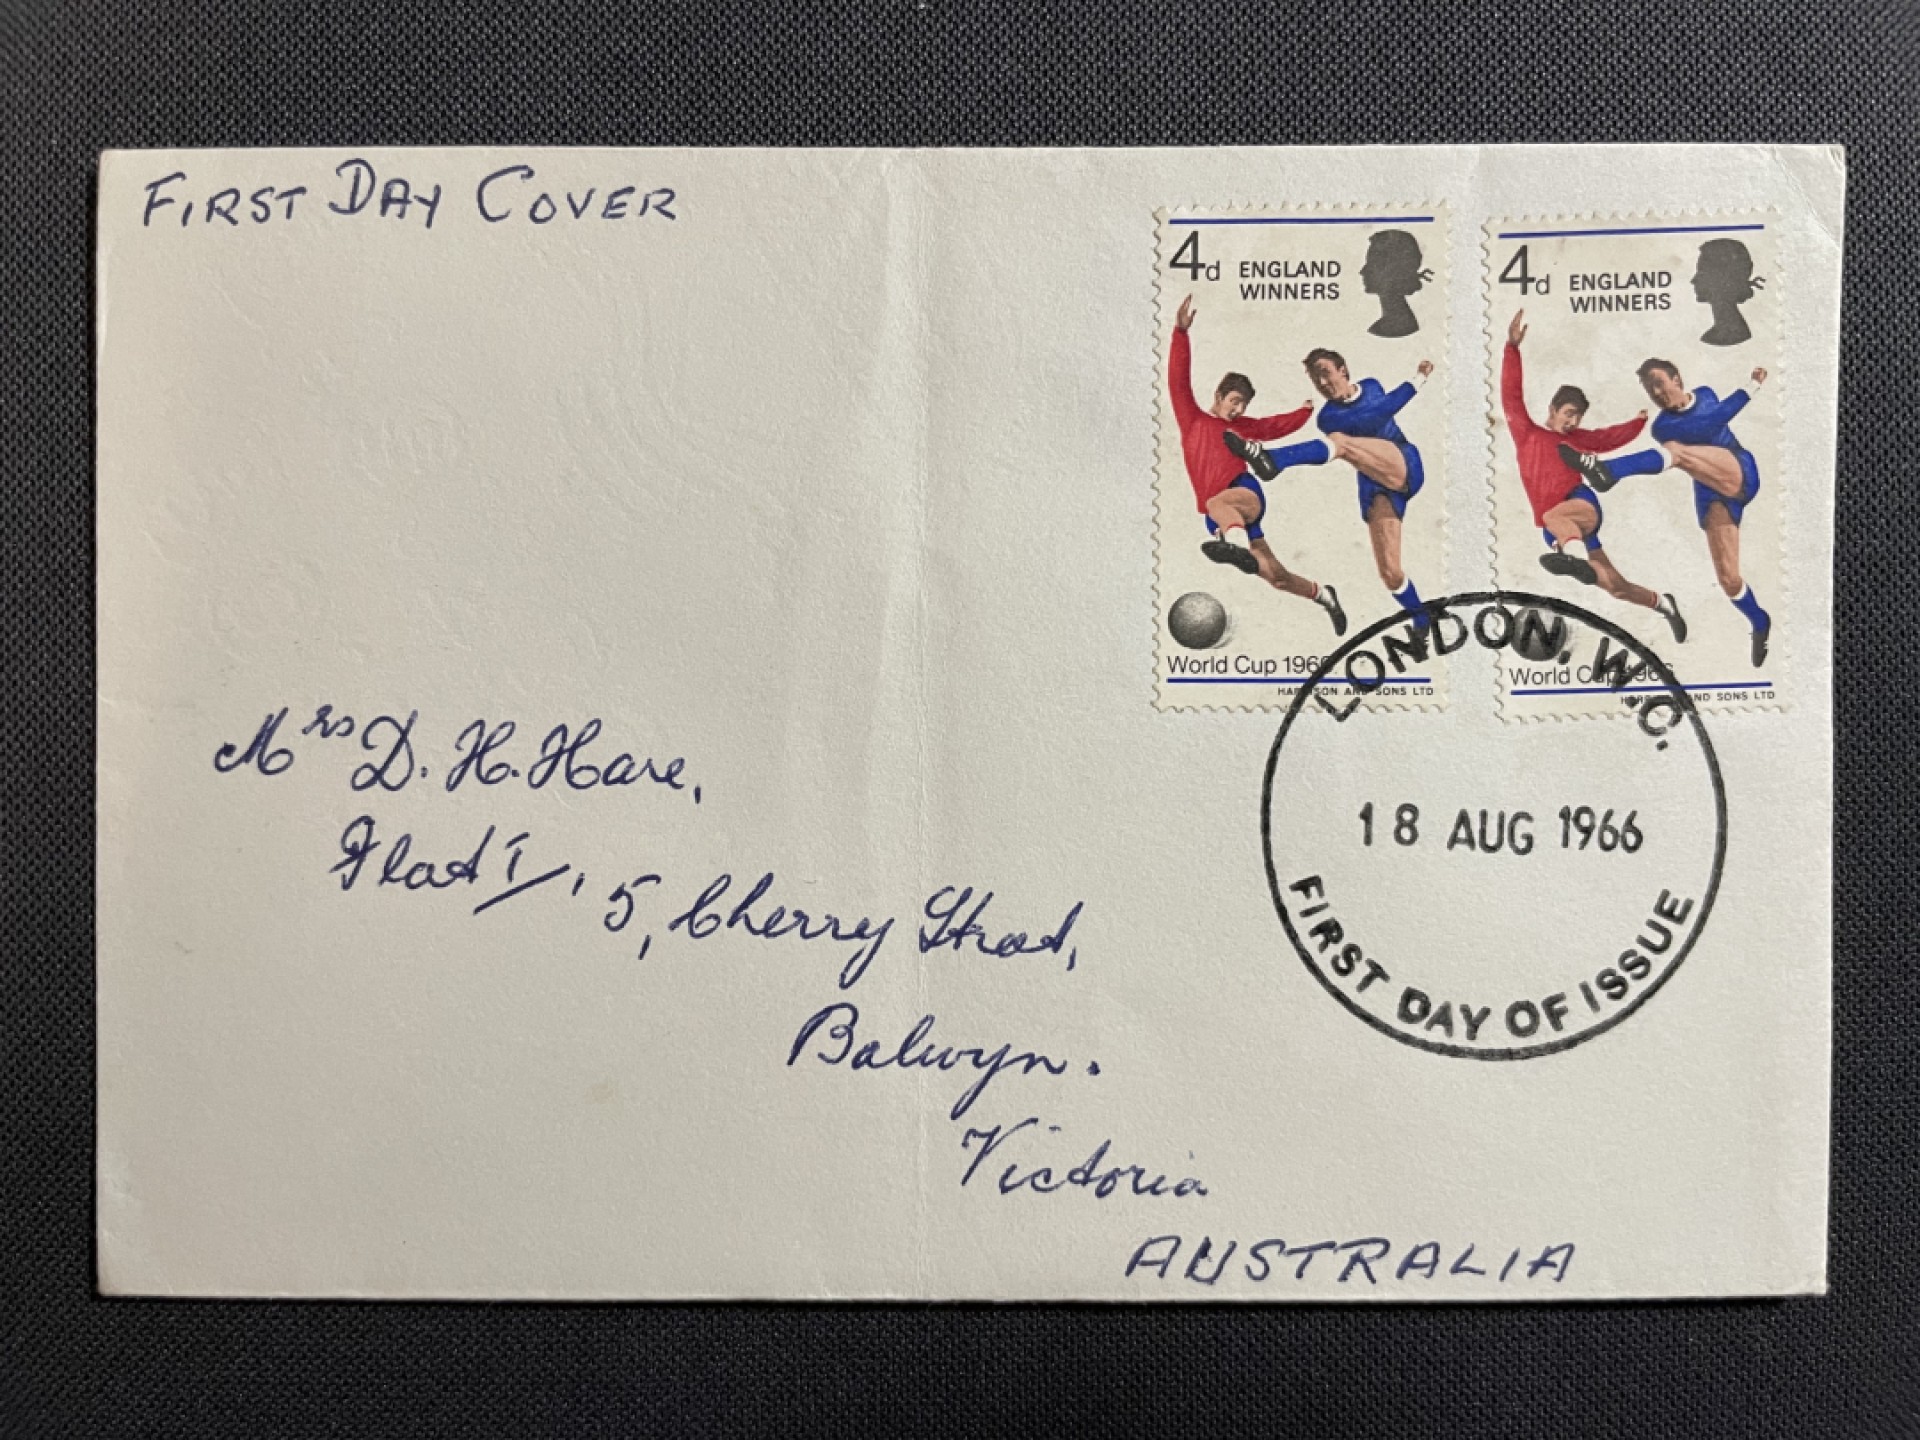 FIRST DAY COVER
4d ENGLAND
WINNERS
World Cup 1966
HARRISON AND SONS LTD
4d ENGLAND
WINNERS
World Cup 1966
HARRISON AND SONS LTD
LONDON, W.C.
18 AUG 1966
FIRST DAY OF ISSUE
Mrs D. H. Hare,
Flat 1, 5, Cherry Street,
Balwyn.
Victoria
AUSTRALIA